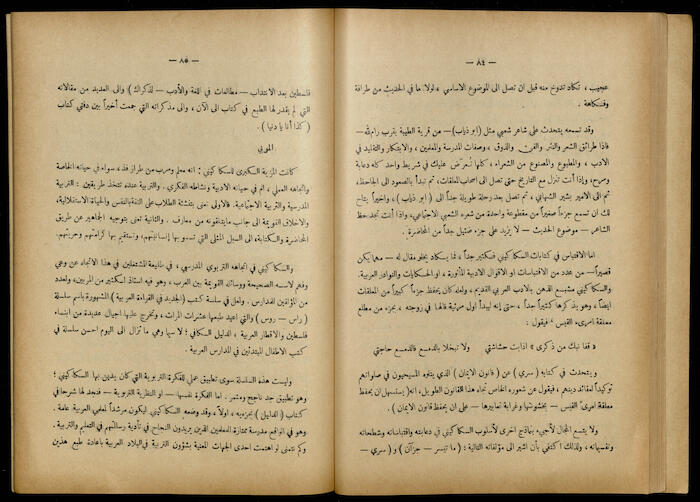 — ٨٤ —
عجيب ، تكاد تدوخ منه قبل ان تصل الى الموضوع الاساسي ، لولا ما في الحديث من طرافة
وفكاهة .
وقد تسمعه يتحدث على شاعر شعبي مثل (ابو ذياب) — من قرية الطيبة بقرب رام الله —
فاذا طرائق الشعر والنثر والفن والذوق ، وصفات المدرسة والمعلمين ، والابتكار والتقليد في
الادب ، والمطبوع والمصنوع من الشعراء ، كلها تُعرض عليك في شريط واحد كله دعابة
ومرح، وإذا أنت تنزل مع التاريخ حتى تصل الى اصحاب المعلقات، ثم تبدأ بالصعود الى الجاحظ،
ثم الى الامير بشير الشهابي، حتى تصل بعد رحلة طويلة جداً الى ( ابو ذياب ) ، واخيراً يتاح
لك ان تسمع جزءاً صغيراً من مقطوعة واحدة من شعره الشعبي الاجتماعي، واذا أنت تجد حظ
الشاعر — موضوع الحديث — لا يزيد على جزء ضئيل جداً من المحاضرة .
اما الاقتباس في كتابات السكاكيني فكثير جداً ، فما يكاد يخلو مقال له — مهما يكن
قصيراً— من عدد من الاقتباسات او الاقوال الادبية المأثورة ، او الحكايات والنوادر العربية.
والسكاكيني مشبع الذهن بالادب العربي القديم ، ولعله كان يحفظ جزءاً كبيراً من المعلقات
ايضاً ، وهو يذكرها كثيراً جداً ، حتى إنه ليبدأ اول مرثية قالها في زوجته ، بجزء من مطلع
معلقة امرىء القيس فيقول :
« قفا نبك من ذكرى » اذابت حشاشتي ولا تبخلا بالدمع فالدمع حاجتي
ويتحدث في كتابه ( سري ) عن ( قانون الايمان ) الذي يتلوه المسيحيون في صلواتهم
توكيداً لعقائد دينهم ، فيقول عن شعوره الخاص تجاه هذا القانون الطويل ، انه ( يستسهل ان يحفظ
معلقة امرىء القيس — بخشونتها وغرابة تعابيرها — على ان يحفظ قانون الايمان ) .
ولا يتسع المجال لأجيء بنماذج اخرى لأسلوب السكاكيني في دعابته واقتباساته وشطحاته
ونفسياته ، ولذلك اكتفي بأن اشير الى مؤلفاته التالية : ( ما تيسر — جزآن ) و ( سري —
— ٨٥ —
فلسطين بعد الانتداب — مطالعات في اللغة والأدب — لذكراك ) والى العديد من مقالاته
التي لم يقدر لها الطبع في كتاب الى الآن ، والى مذكراته التي جمعت أخيراً بين دفتي كتاب
( كذا أنا يا دنيا ) .
المربي
كانت المزية الكبرى للسكاكيني : انه معلم ومرب من طراز فذ، سواء في حياته الخاصة
واتجاهه العملي ، ام في حياته الادبية ونشاطه الفكري . والتربية عنده تتخذ طريقين : التربية
المدرسية والتربية الاجتماعية. فالاولى تعنى بتنشئة الطلاب على الثقة بالنفس والحياة الاستقلالية،
والاخلاق القويمة الى جانب ما يتلقونه من معارف . والثانية تعنى بتوجيه الجماهير عن طريق
المحاضرة والكتابة، الى السبل المثلى التي تسمو بها إنسانيتهم، وتستقيم بها كرامتهم وحريتهم.
والسكاكيني في اتجاهه التربوي المدرسي ، في طليعة المشتغلين في هذا الاتجاه عن وعي
وفهم لاسسه الصحيحة ووسائله القويمة بين العرب ، وهو فيه استاذ لكثير من المربين، ولعدد
من المؤلفين للمدارس . ولعل في سلسلة كتب (الجديد في القراءة العربية) المشهورة باسم سلسلة
( راس — روس ) والتي اعيد طبعها عشرات المرات ، وتخرج عليها اجيال عديدة من ابناء
فلسطين والاقطار العربية ، الدليل الكافي ؛ لا سيما وهي ما تزال الى اليوم احسن سلسلة في
كتب الاطفال المبتدئين في المدارس العربية .
وليست هذه السلسلة سوى تطبيق عملي للفكرة التربوية التي كان يدين بها السكاكيني ؛
وهو تطبيق جد ناجح ومثمر . اما الفكرة نفسها — او النظرية التربوية — فنجد لها شرحاً في
كتاب ( الدليل ) بجزءيه ، اولاً ، وقد وضعه السكاكيني ليكون مرشداً لمعلمي العربية عامة .
وهو في الواقع مدرسة ممتازة للمعلمين الذين يريدون النجاح في تأدية رسالتهم في التعليم والتربية .
وكم نتمنى لو اهتمت احدى الجهات المعنية بشؤون التربية في البلاد العربية باعادة طبع هذين